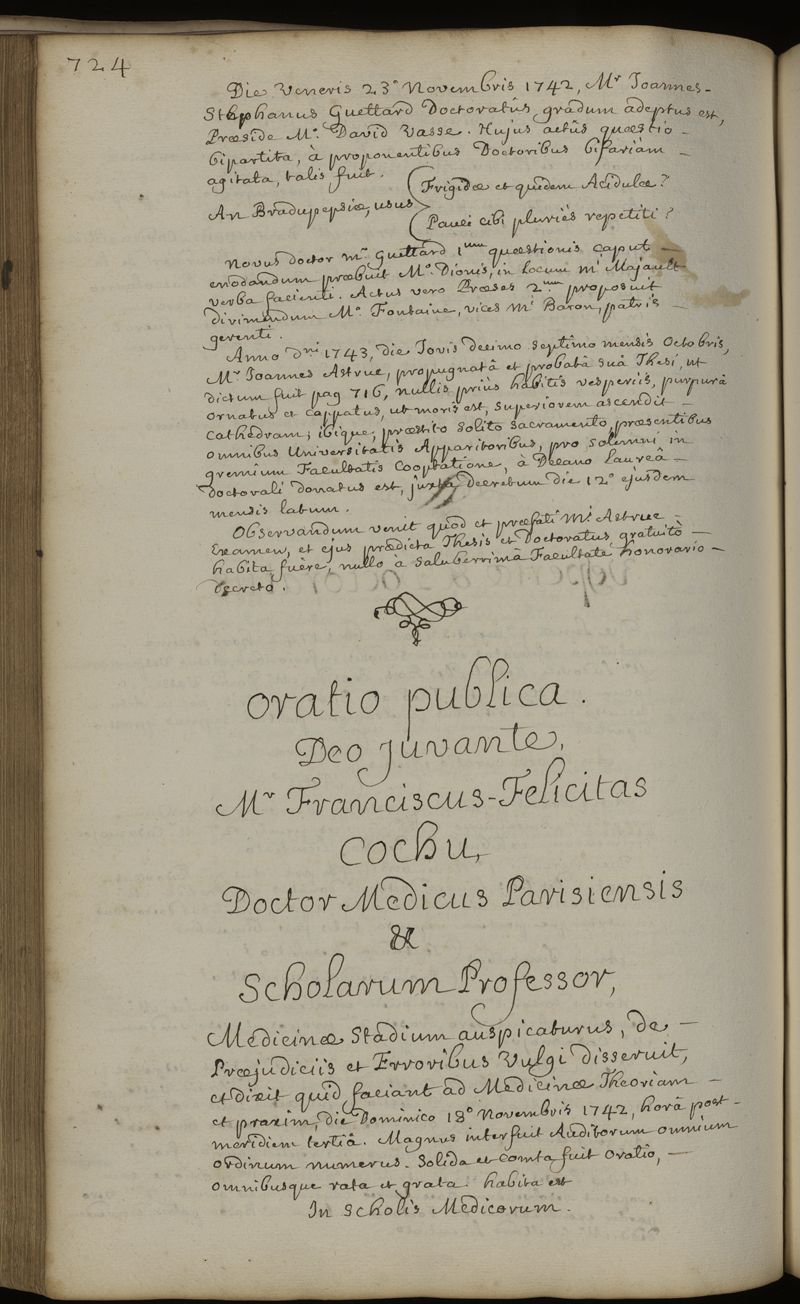 724
Die Veneris 23° Novembris 1742, Mr Joannes-
Stephanus Guettard Doctoratûs gradum adeptus est,
Præside M°. David Vasse. Hujus actûs quæstio -
bipartita, à proponentibus Doctoribus bifariàm -
agitata, talis fuit.
An Bradypepsiæ, usus { Frigidæ et quidem Acidulæ?
Pauci cibi pluriès repetiti?
Novus doctor mr. Guettard 1um quæstionis caput -
enodandum præbuit M°. Dionis, in locum mi Majault
verba facienti. Actus vero Præses 2um proposuit
dirimendum M°. Fontaine, vices mi Baron, patris -
gerenti.
Anno dni 1743, die Jovis decimo septimo mensis Octobris,
Mr Joannes Astruc, propugnatâ et probatâ suâ Thesi, ut
dictum fuit pag 716, nullis priùs habitis vesperiis, purpurâ
ornatus et cappatus, ut moris est, superiorem ascendit -
cathedram; ibique, præstito solito sacramento, præsentibus
omnibus Universitatis Apparitoribus, pro solemni in
gremium Facultatis Cooptatione, à Decano laureâ -
doctorali donatus est, juxta decretum die 12° ejusdem
mensis latum.
Observandum venit quod et præfati Mi Astruc -
Examen, et ejus prædicta Thesis et Doctoratus, gratuitò -
habita fuêre, nullo à saluberrimâ Facultate honorario -
decreto.
Oratio publica.
Deo juvante,
Mr Franciscus-Felicitas
Cochu,
Doctor Medicus Parisiensis
&
Scholarum Professor,
Medicinæ Stadium auspicaturus, de -
Præjudiciis et Erroribus Vulgi disseruit,
et dixit quid faciant ad Medicinæ Theoriam -
et praxim, die Dominico 18° Novembris 1742, horâ post-
meridiem tertiâ. Magnus interfuit Auditorum omnium
ordinum numerus. Solida et Comta fuit Oratio, -
omnibusque rata et grata. habita est
In Scholis Medicorum.